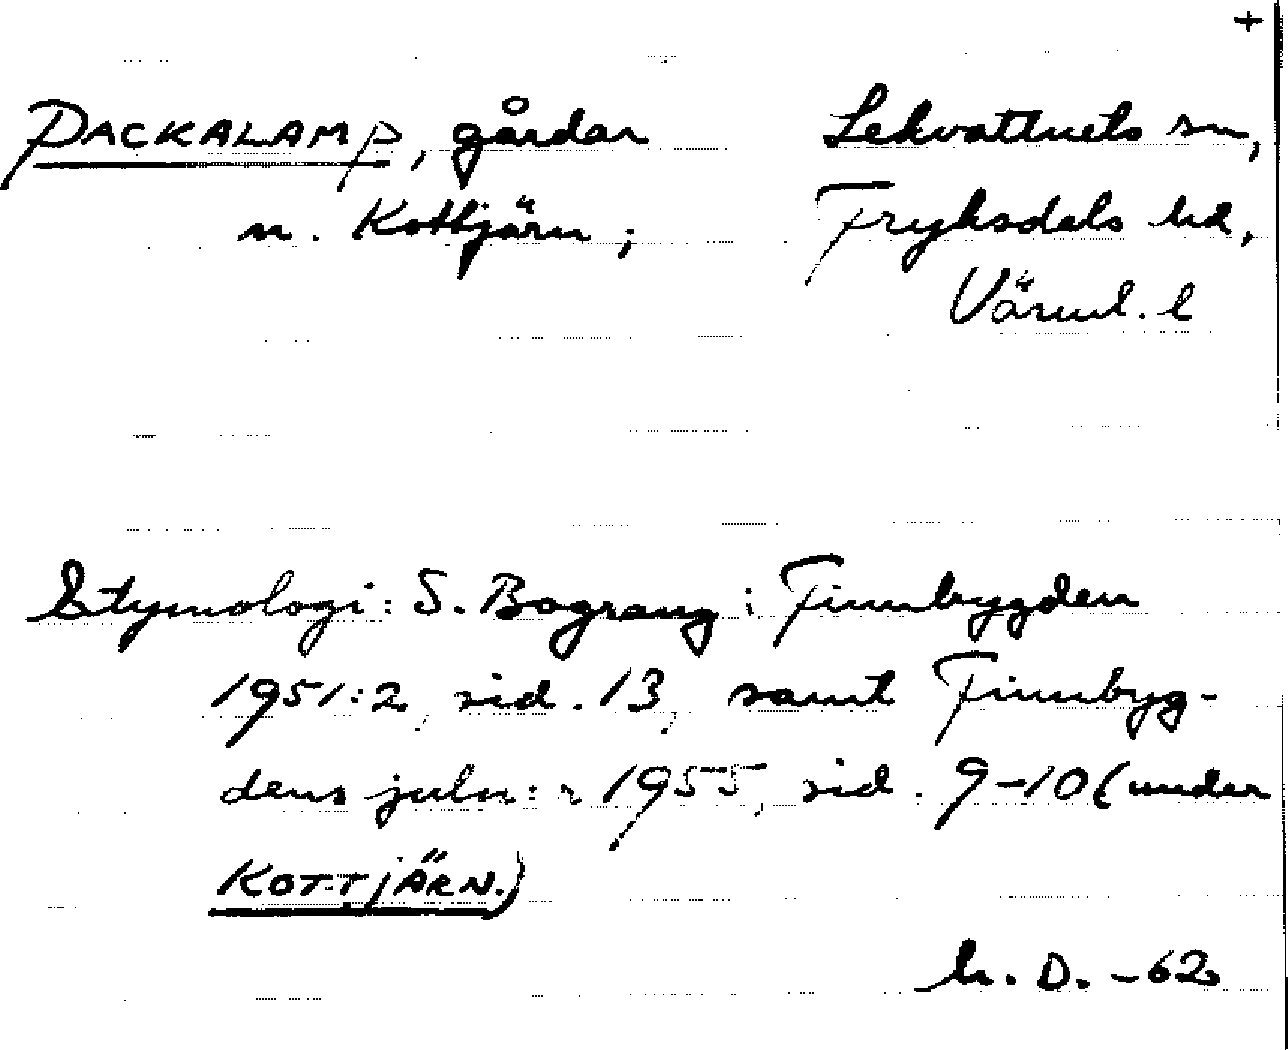 +
PACKALAMP, gårdar
n. Kottjärn;
Lekvattnets sn,
Fryksdals hd,
Värml. l
Etymologi: S. Bograng i Finnbygden
1951:2, sid. 13, samt Finnbyg-
dens juln:r 1955, sid. 9-10 (under
KOTTJÄRN.)
h. D. -62